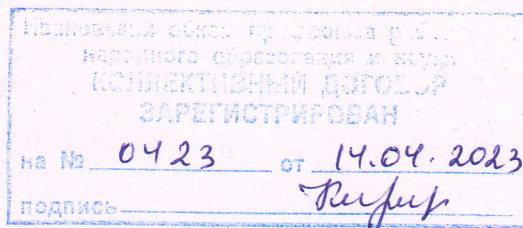 народного образования и науки
КОЛЛЕКТИВНЫЙ ДОГОВОР
ЗАРЕГИСТРИРОВАН
на № 0423 от 14.04.2023
подпись